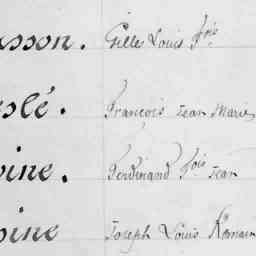 sson. Gilles Louis fois
slé. François Jean Marie
oine. Ferdinand fois Jean
oine Joseph Louis Romain